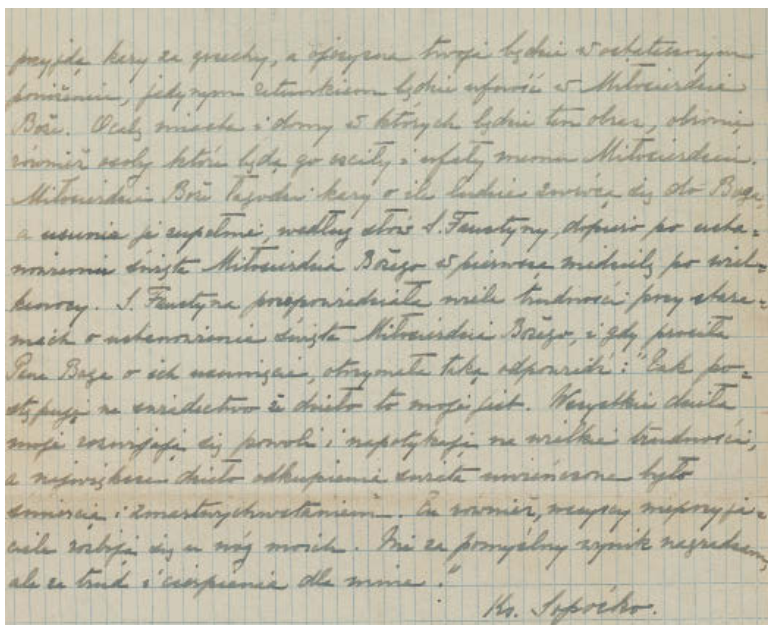 przyjdą kary za grzechy, a ojczyzna twoja będzie w ostatecznym
poniżeniu, jedynym ratunkiem będzie ufność w Miłosierdzie
Boże. Ocalę miasta i domy w których będzie ten obraz, obronię
również osoby które będą go czciły i ufały memu Miłosierdziu.
Miłosierdzie Boże łagodzi kary o ile ludzie zwrócą się do Boga,
a usunie je zupełnie, według słów S. Faustyny, dopiero po usta=
nowieniu święta Miłosierdzia Bożego w pierwszą niedzielę po wiel=
kanocy. S. Faustyna przepowiedziała wiele trudności przy stara=
niach o ustanowienie święta Miłosierdzia Bożego, i gdy prosiła
Pana Boga o ich usunięcie, otrzymała taką odpowiedź: "Tak po=
stępuję na świadectwo że dzieło to moje jest. Wszystkie dzieła
moje rozwijają się powoli i napotykają na wielkie trudności,
a największe dzieło odkupienia świata uwieńczone było
śmiercią i zmartwychwstaniem. Tu również, wszyscy nieprzyja=
ciele rozbiją się u nóg moich. Nie za pomyślny wynik nagradzam,
ale za trud i cierpienie dla mnie."
Ks. Sopoćko.